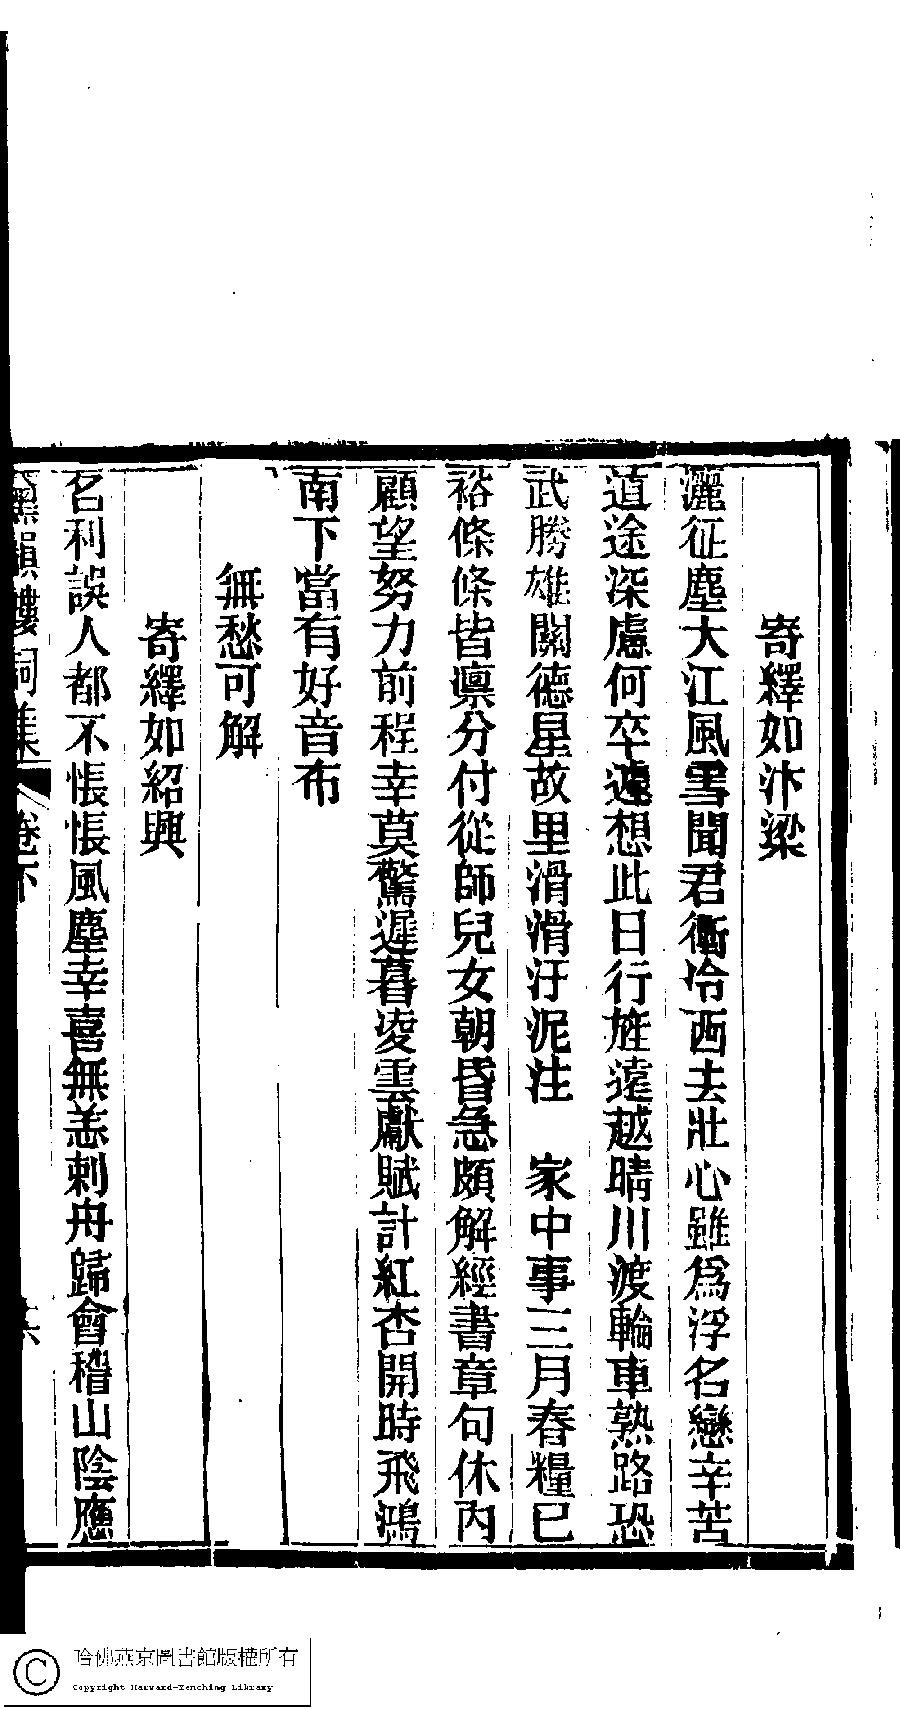 寄繹如汴梁
灑征塵大江風雪聞君衝冷西去壯心雖爲浮名戀辛苦
道途深慮何卒遽想此日行旌遠越晴川渡輪車熟路恐
武勝雄關德星故里滑滑汙泥注　家中事三月舂糧已
裕條條皆稟分付從師兒女朝昏急頗解經書章句休內
顧望努力前程幸莫驚遲暮凌雲獻賦計紅杏開時飛鴻
南下當有好音布
無愁可解
寄繹如紹興
名利誤人都不悵悵風塵幸喜無恙剌舟歸會稽山陰應
黑韻樓詞集
卷下
哈佛燕京圖書館版權所有
Copyright Harvard-Yenching Library